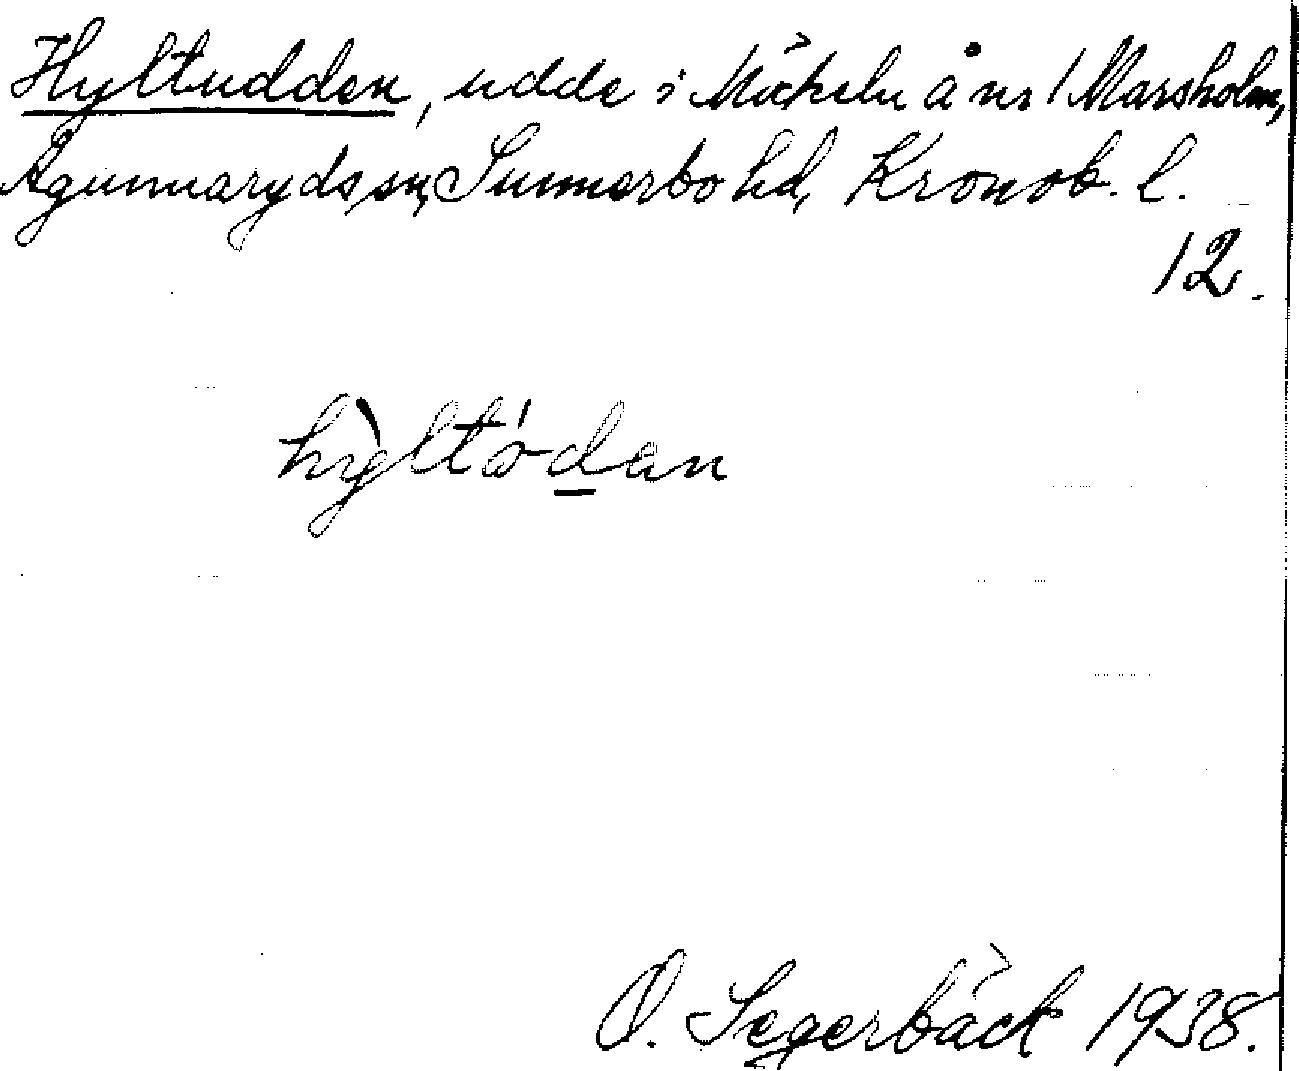 Hyltudden, udde i Möckeln å nr 1 Marsholm,
Agunnaryds sn, Sunnerbo hd, Kronob. l.
12.
hỳ̬ltódan
O. Segerbäck 1938.